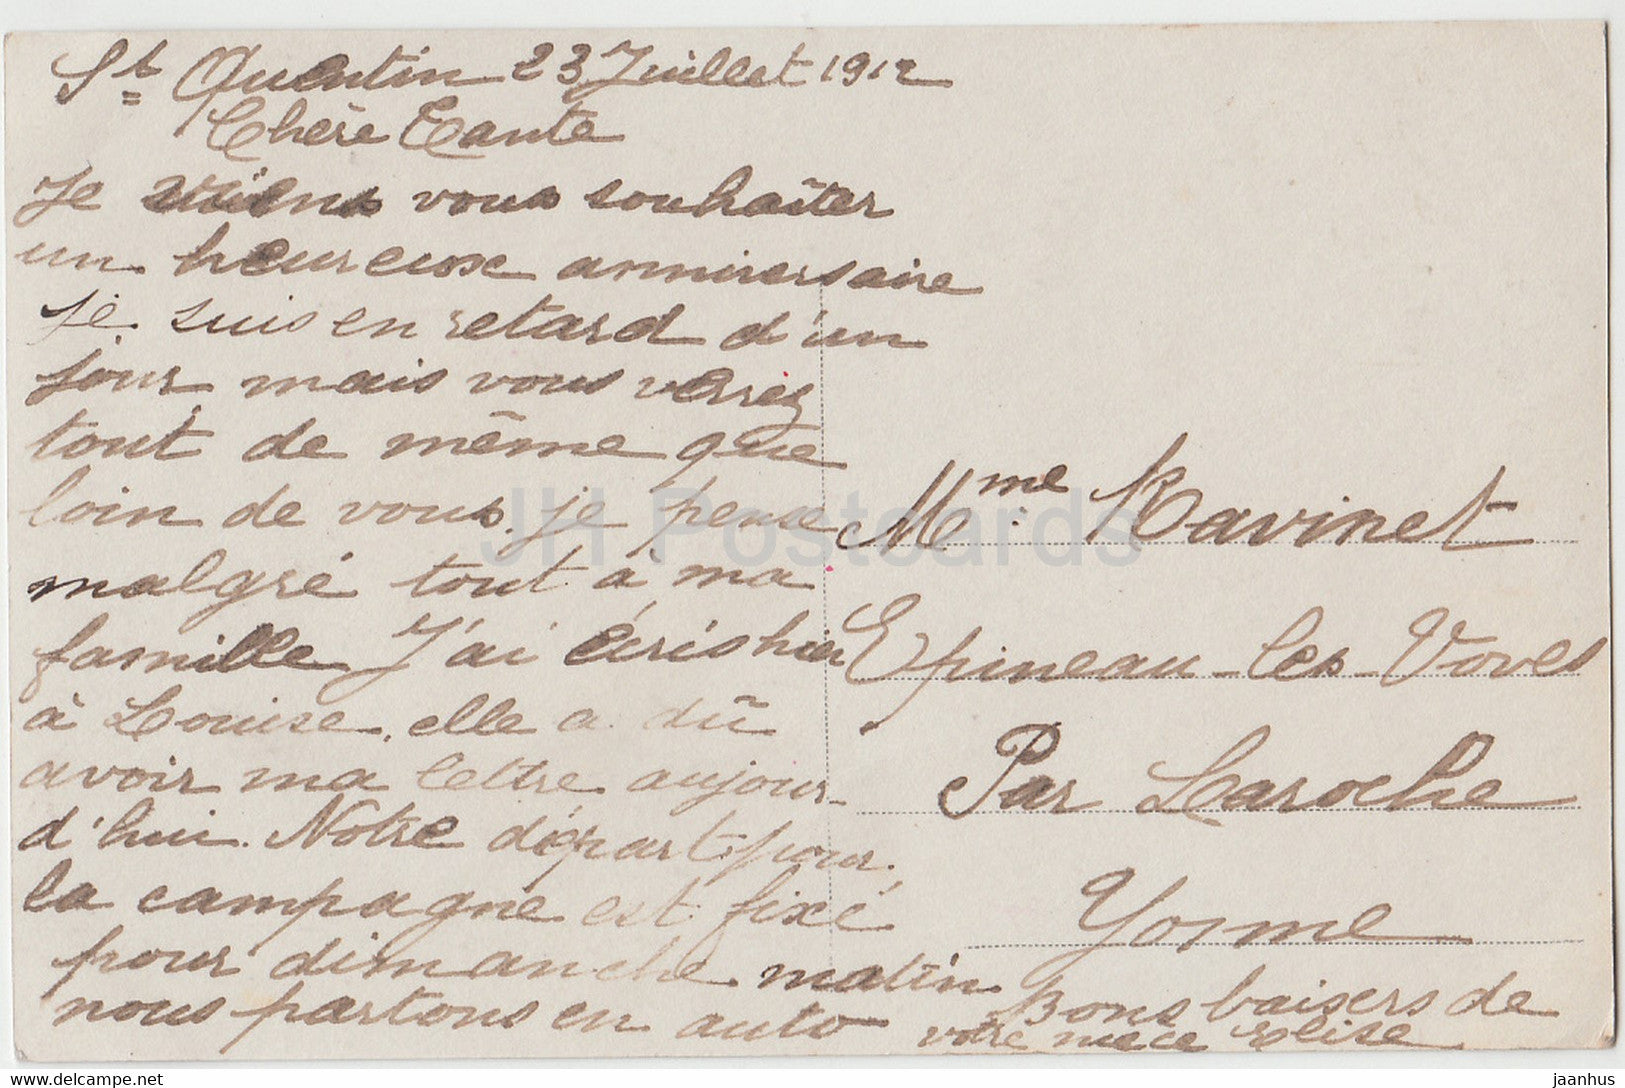 St Quentin 23 Juillet 1912
Chère Tante
Je viens vous souhaiter
un heureux anniversaire
je suis en retard d'un
jour mais vous verrez
tout de même que
loin de vous je pense
malgré tout à ma
famille J'ai écris hier
à Louise, elle a dû
avoir ma lettre aujour-
d'hui. Notre départ pour
la campagne est fixé
pour dimanche matin
nous partons en auto
Bons baisers de
votre niece Elise
Mme Ravinet
Epineau-les-Voves
Par Laroche
Yonne
JH Postcards
delcampe.net
jaanhus